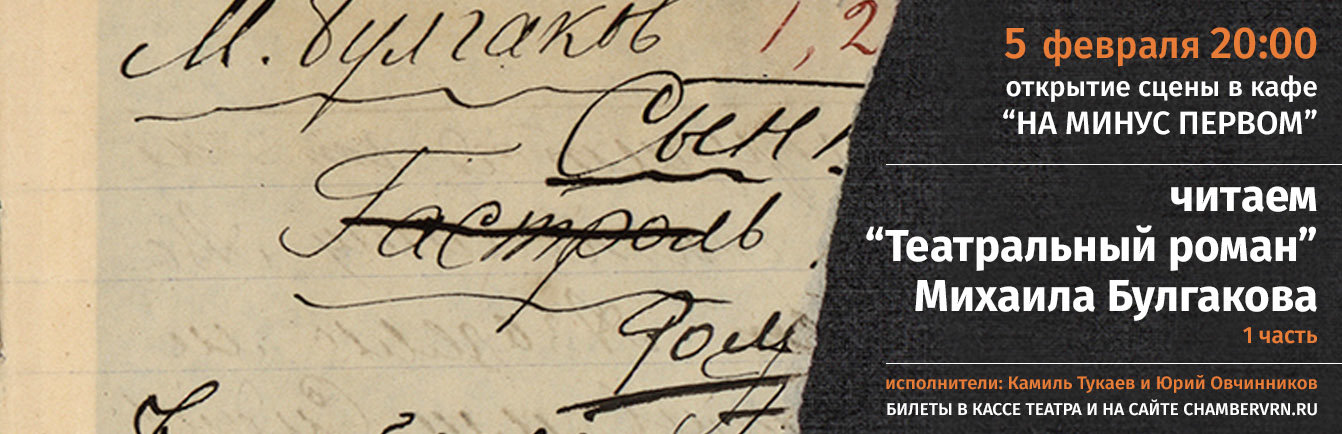 М. Булгаков 1,2
Сын
Гастроль
Ром
5 февраля 20:00
открытие сцены в кафе
“НА МИНУС ПЕРВОМ”
читаем
“Театральный роман”
Михаила Булгакова
1 часть
исполнители: Камиль Тукаев и Юрий Овчинников
БИЛЕТЫ В КАССЕ ТЕАТРА И НА САЙТЕ CHAMBERVRN.RU